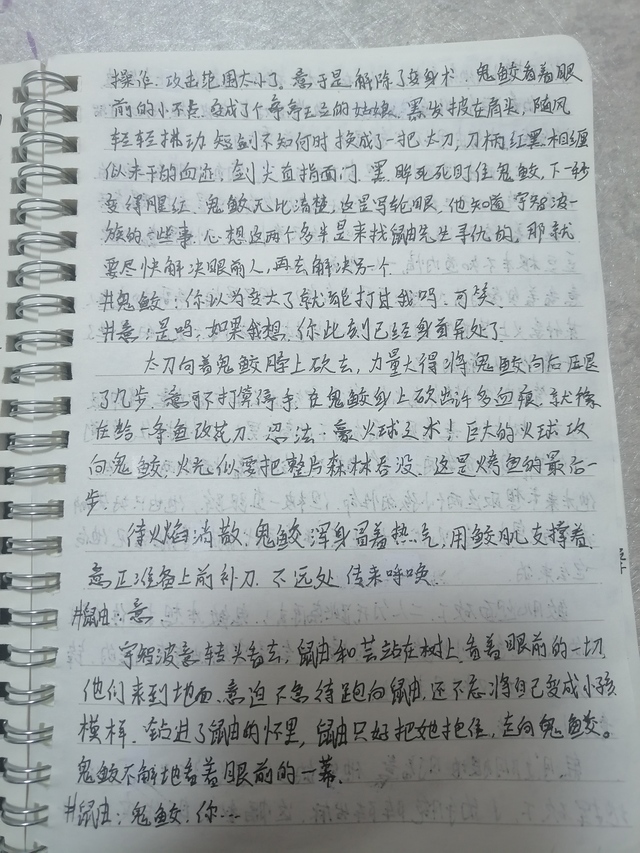 操作.攻击范围太小了.意于是解除了变身术.鬼鲛看着眼
前的小不点.变成了个亭亭玉立的姑娘.黑发披在肩头,随风
轻轻拂动.短剑不知何时换成了一把太刀,刀柄红黑相缠
似未干的血迹.剑尖直指面门.黑眸死死盯住鬼鲛,下一秒
变得腥红.鬼鲛无比清楚,这是写轮眼,他知道宇智波一
族的一些事.心想这两个多半是来找鼬先生寻仇的,那就
要尽快解决眼前人,再去解决另一个
#鬼鲛:你以为变大了就能打过我吗.可笑.
#意:是吗.如果我想.你此刻已经身首异处了.
太刀向着鬼鲛脖上砍去,力量大得将鬼鲛向后压退
了几步.意可不打算停手.在鬼鲛身上砍出许多血痕.就像
在给一条鱼改花刀.忍法·豪火球之术!巨大的火球攻
向鬼鲛,火光似要把整片森林吞没.这是烤鱼的最后一
步
待火焰消散.鬼鲛浑身冒着热气,用鲛肌支撑着.
意正准备上前补刀.不远处传来呼唤.
#鼬:意.
宇智波意转头看去,鼬和芸站在树上.看着眼前的一切
他们来到地面.意迫不急待跑向鼬,还不忘将自己变成小孩
模样.钻进了鼬的怀里,鼬只好把她抱住,走向鬼鲛。
鬼鲛不解地看着眼前的一幕.
#鼬:鬼鲛.你…